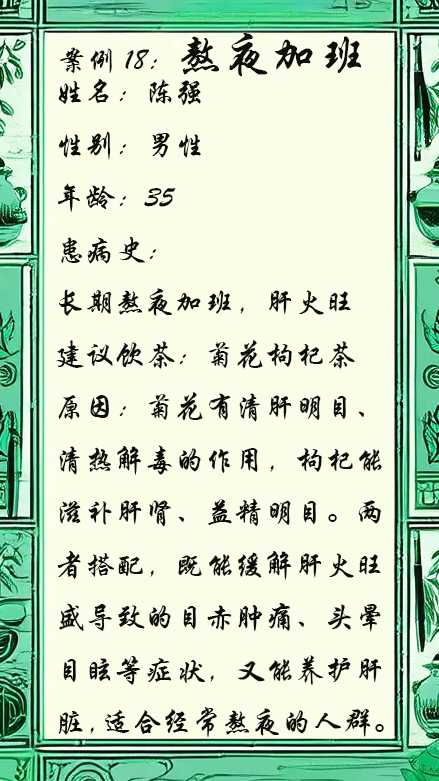 案例 18：熬夜加班
姓名：陈强
性别：男性
年龄：35
患病史：
长期熬夜加班，肝火旺
建议饮茶：菊花枸杞茶
原因：菊花有清肝明目、
清热解毒的作用，枸杞能
滋补肝肾、益精明目。两
者搭配，既能缓解肝火旺
盛导致的目赤肿痛、头晕
目眩等症状，又能养护肝
脏，适合经常熬夜的人群。